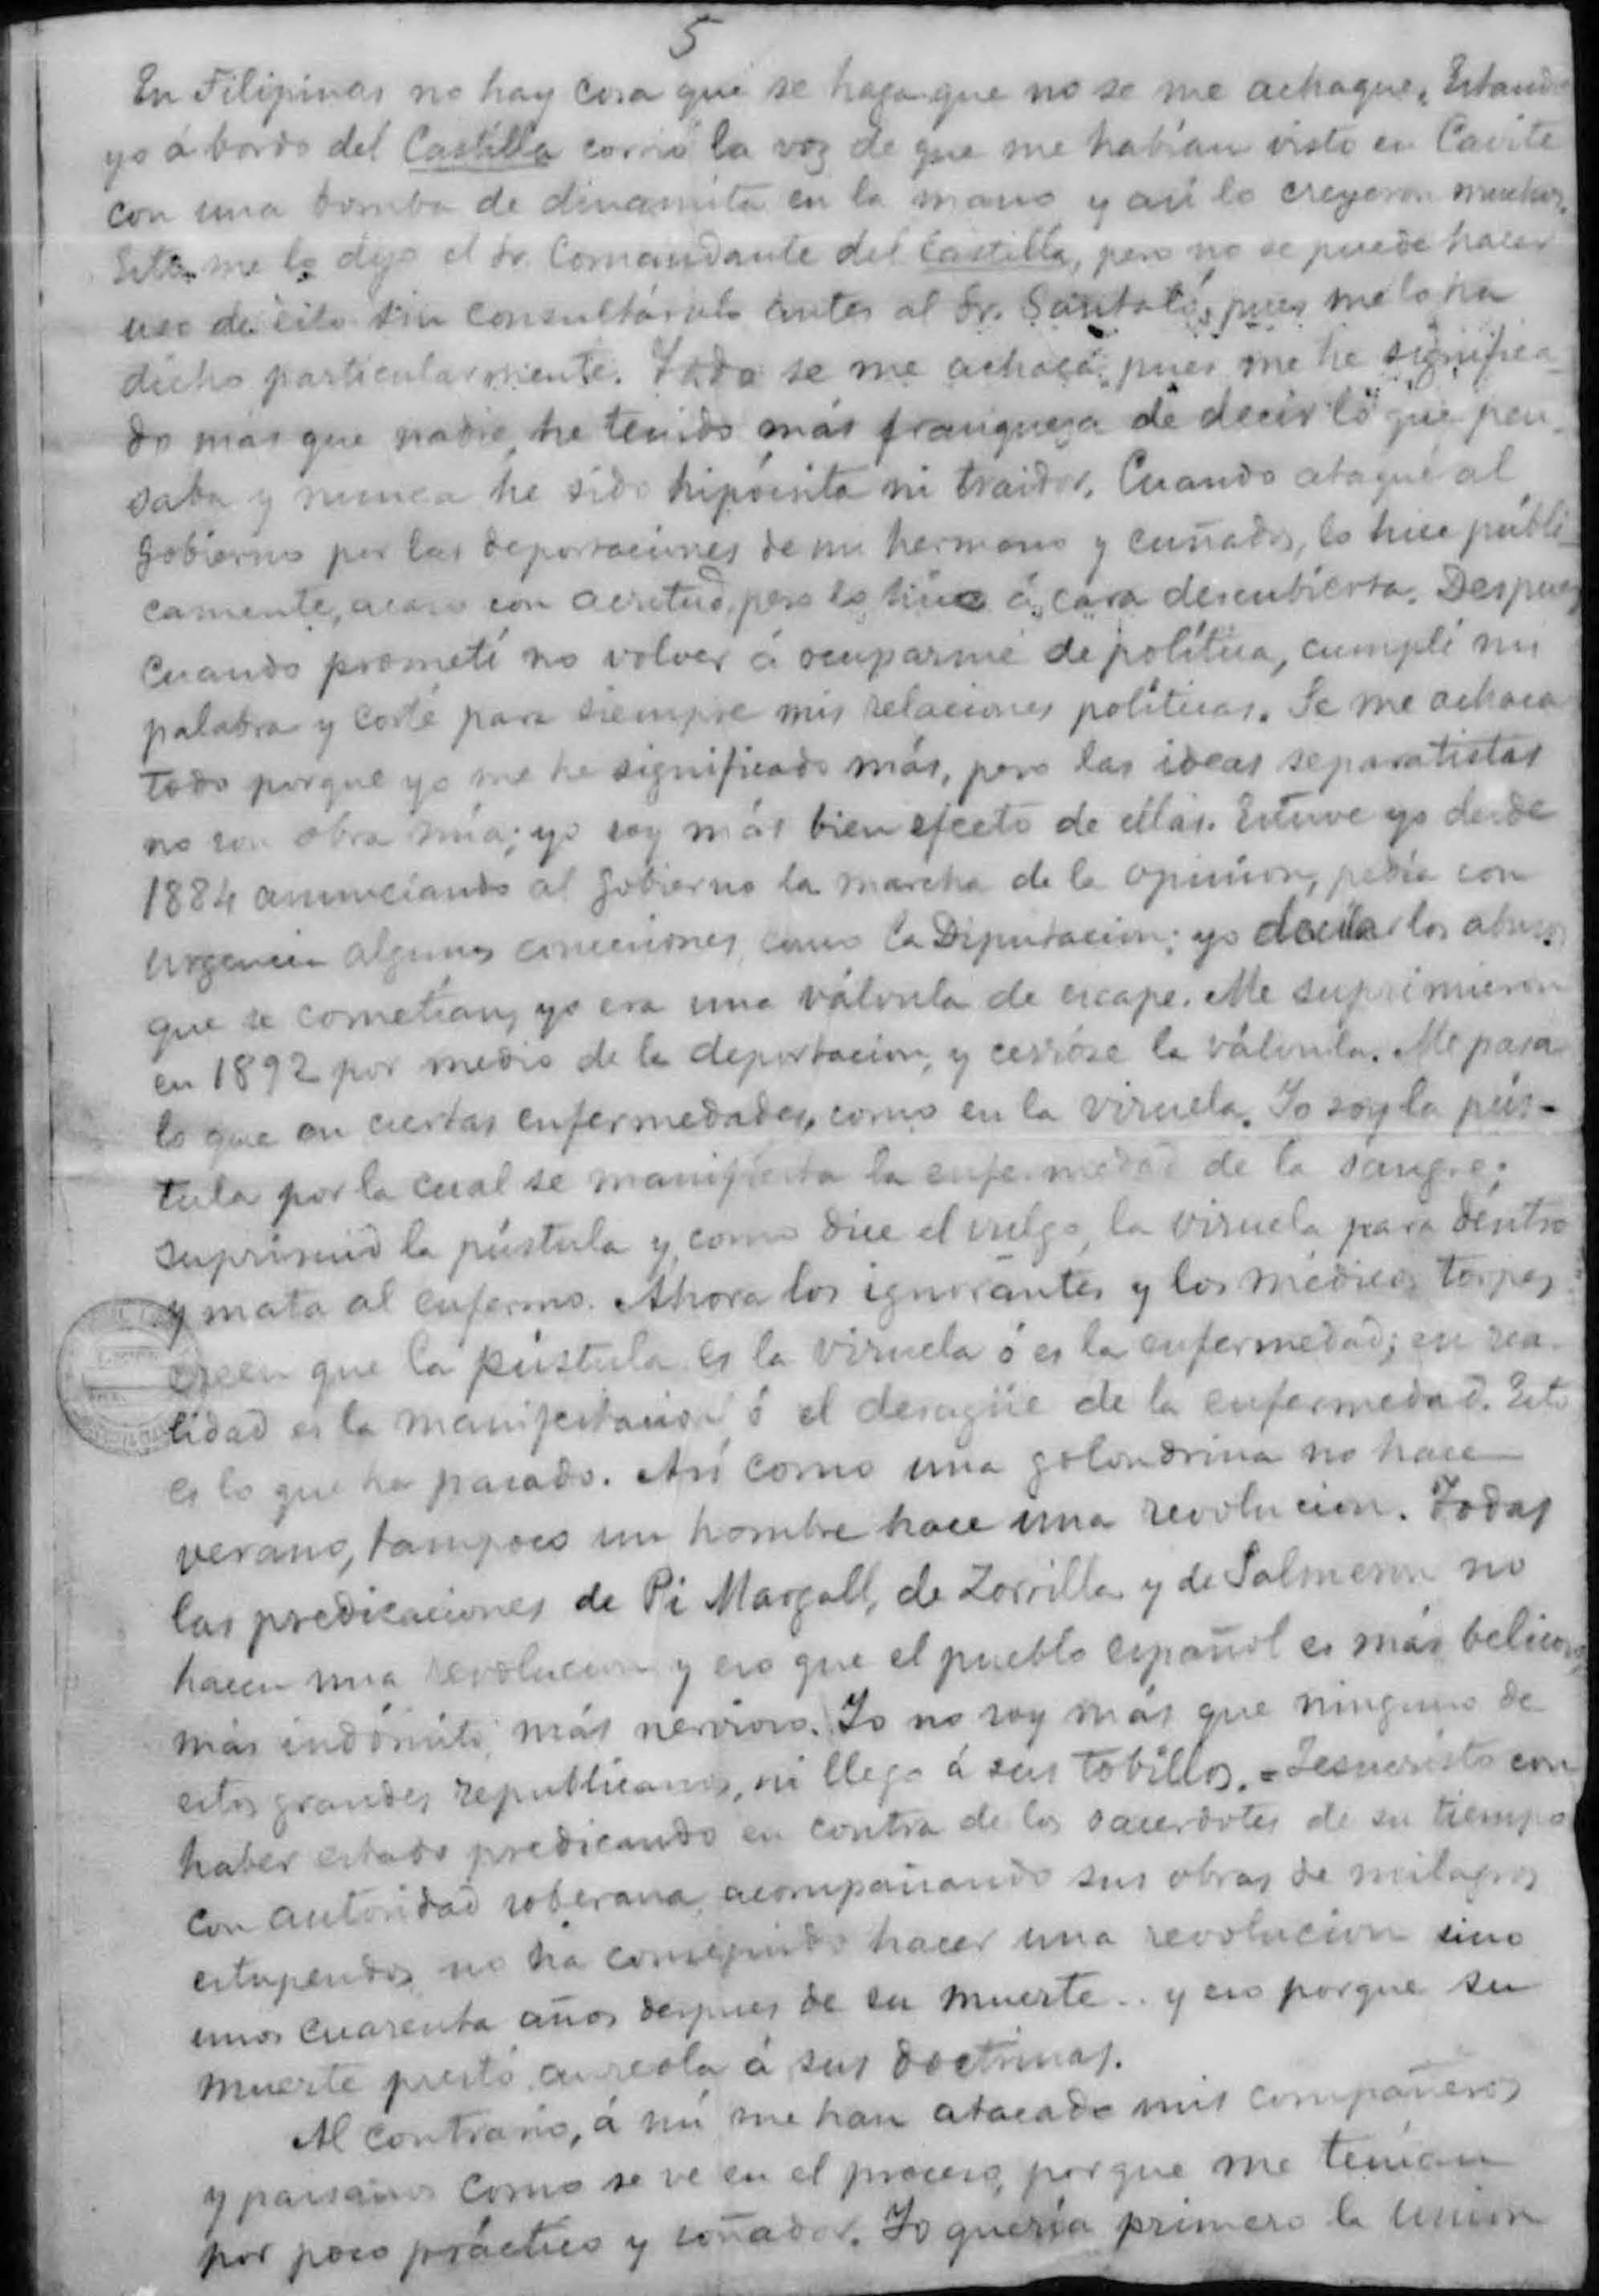 5
En Filipinas no hay cosa que se haga que no se me achaque. Estando
yo á bordo del Castilla corrió la voz de que me habían visto en Cavite
con una bomba de dinamita en la mano y así lo creyeron muchos.
Esto me lo dijo el Sr. Comandante del Castilla, pero no se puede hacer
uso de esto sin consultárselo antes al Sr. Santaló, pues me lo ha
dicho particularmente. Todo se me achaca, pues me he significa-
do más que nadie, he tenido más franqueza de decir lo que pen-
saba y nunca he sido hipócrita ni traidor. Cuando ataqué al
Gobierno por las deportaciones de mi hermano y cuñados, lo hice públi-
camente, acaso con acritud, pero lo hice á cara descubierta. Despues
cuando prometí no volver á ocuparme de política, cumplí mi
palabra y corté para siempre mis relaciones políticas. Se me achaca
todo porque yo me he significado más, pero las ideas separatistas
no son obra mía; yo soy más bien efecto de ellas. Estuve yo desde
1884 anunciando al Gobierno la marcha de la opinion, pedía con
urgencia algunas concesiones como la Diputacion; yo decía los abusos
que se cometían, yo era una válvula de escape. Me suprimieron
en 1892 por medio de la deportacion, y cerróse la válvula. Me pasa
lo que en ciertas enfermedades, como en la viruela. Yo soy la pús-
tula por la cual se manifiesta la enfermedad de la sangre;
suprimid la pústula y, como dice el vulgo, la viruela pasa dentro
y mata al enfermo. Ahora los ignorantes y los médicos torpes
creen que la pústula es la viruela ó es la enfermedad; en rea-
lidad es la manifestacion ó el desagüe de la enfermedad. Esto
es lo que ha pasado. Así como una golondrina no hace
verano, tampoco un hombre hace una revolucion. Todas
las predicaciones de Pi Margall, de Zorrilla y de Salmeron no
hacen una revolucion y eso que el pueblo español es más belicoso,
más indómito, más nervioso. Yo no soy más que ninguno de
estos grandes republicanos, ni llego á sus tobillos. = Jesucristo con
haber estado predicando en contra de los sacerdotes de su tiempo
con autoridad soberana, acompañando sus obras de milagros
estupendos no ha conseguido hacer una revolucion sino
unos cuarenta años despues de su muerte.. y eso porque su
muerte prestó aureola á sus doctrinas.
Al contrario, á mí me han atacado mis compañeros
y paisanos como se ve en el proceso, porque me tenían
por poco práctico y soñador. Yo quería primero la union